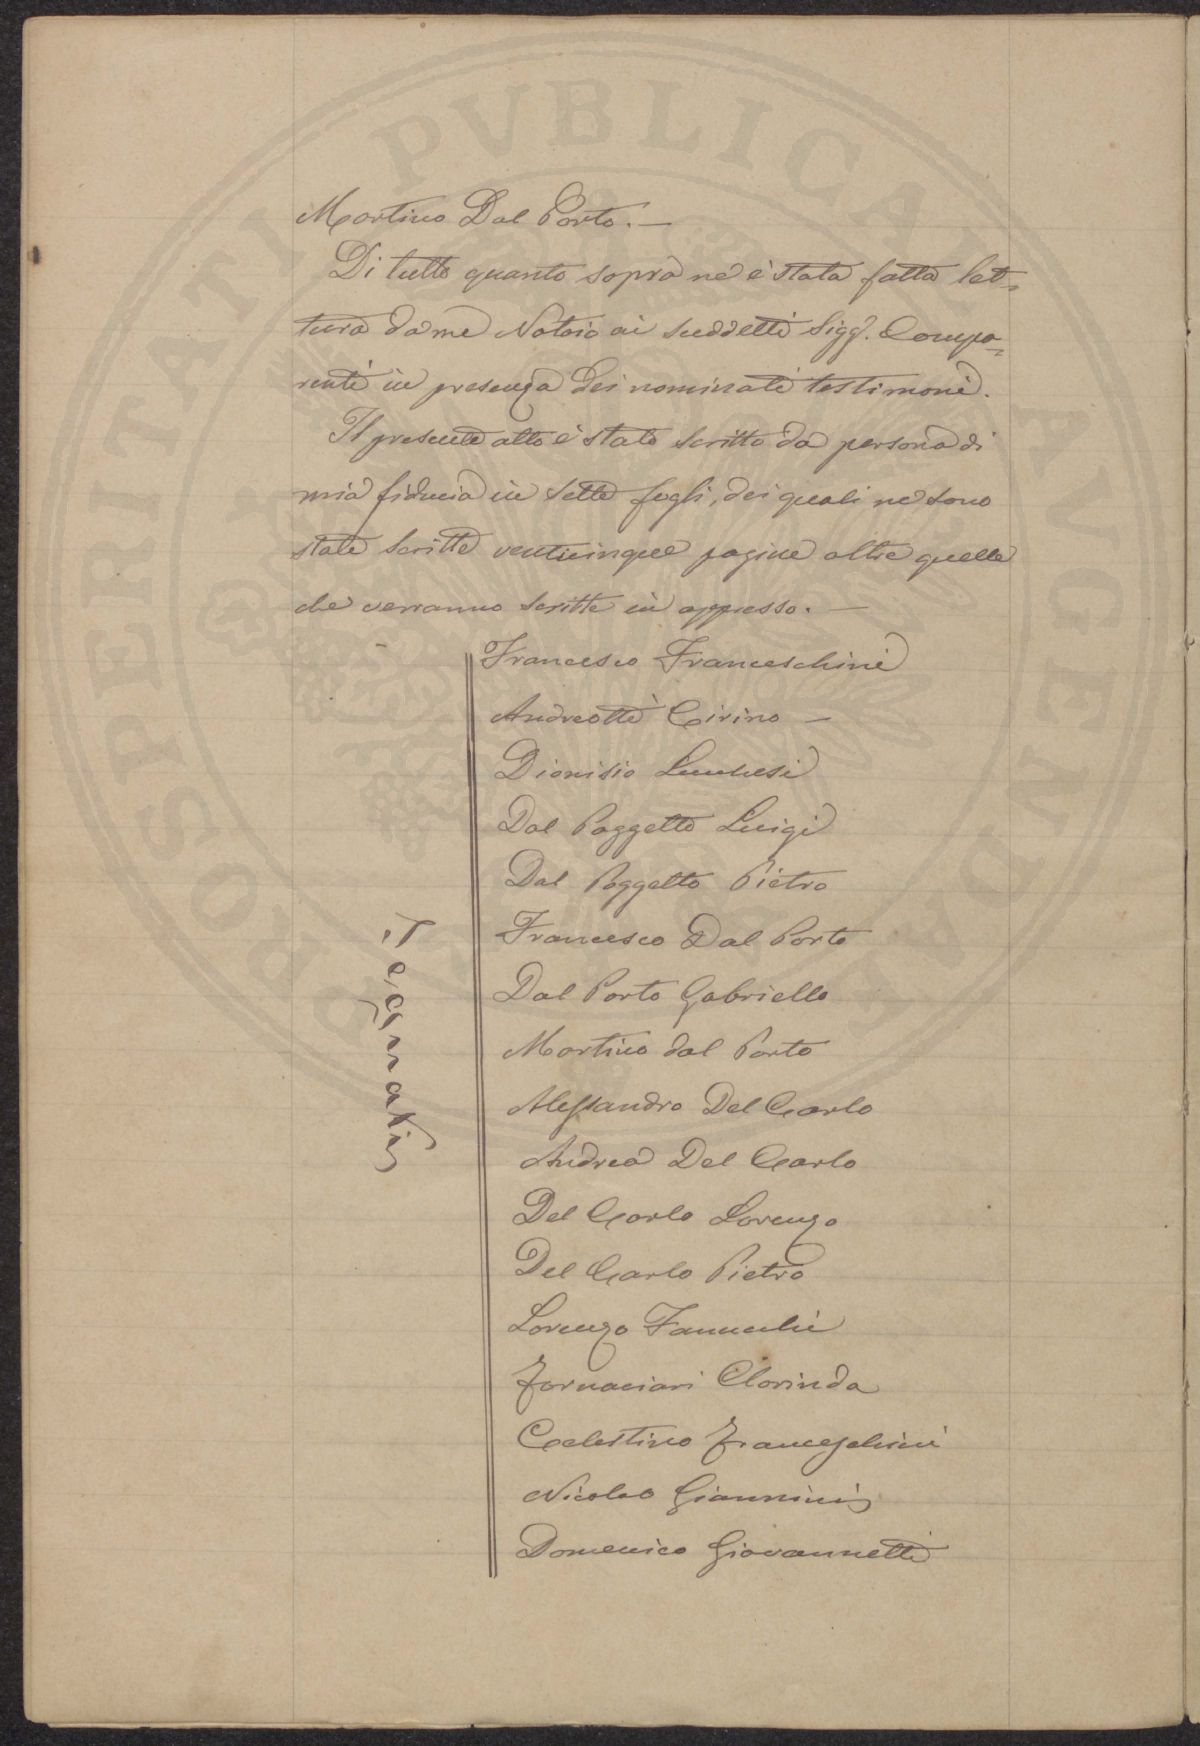 Martino Dal Porto. —
Di tutto quanto sopra ne è stata fatta let=
tura da me Notaio ai suddetti Sigg. Compa=
renti in presenza dei nominati testimoni.
Il presente atto è stato scritto da persona di
mia fiducia in sette fogli, dei quali ne sono
state scritte venticinque pagine oltre quelle
che verranno scritte in appresso. —
Francesco Franceschini
Andreotti Cirino —
Dionisio Lucchesi
Dal Poggetto Luigi
Dal Poggetto Pietro
Francesco Dal Porto
Dal Porto Gabriello
Martino dal Porto
Alessandro Del Carlo
Andrea Del Carlo
Del Carlo Lorenzo
Del Carlo Pietro
Lorenzo Fanucchi
Fornaciari Clorinda
Celestino Franceschini
Nicolao Giannini
Domenico Giovannetti
Segnati
PROSPERITATI PVBLICAE AVGENDAE